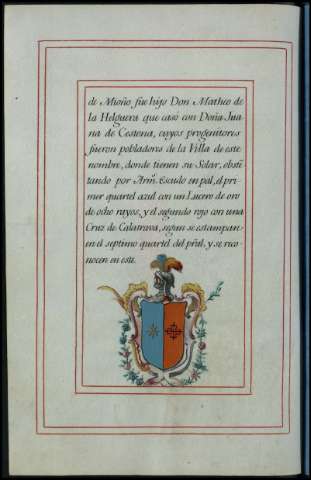 de Mioño fue hijo Don Matheo de
la Helguera que casó con Doña Jua
na de Cestona, cuyos progenitores
fueron pobladores de la Villa de este
nombre, donde tienen su Solar, obsten
tando por Arm.s Escudo en pal, el pri
mer quartel azul con un Lucero de oro
de ocho rayos, y el segundo rojo con una
Cruz de Calatrava, segun se estampan
en el septimo quartel del pral. y se reco
nocen en este.